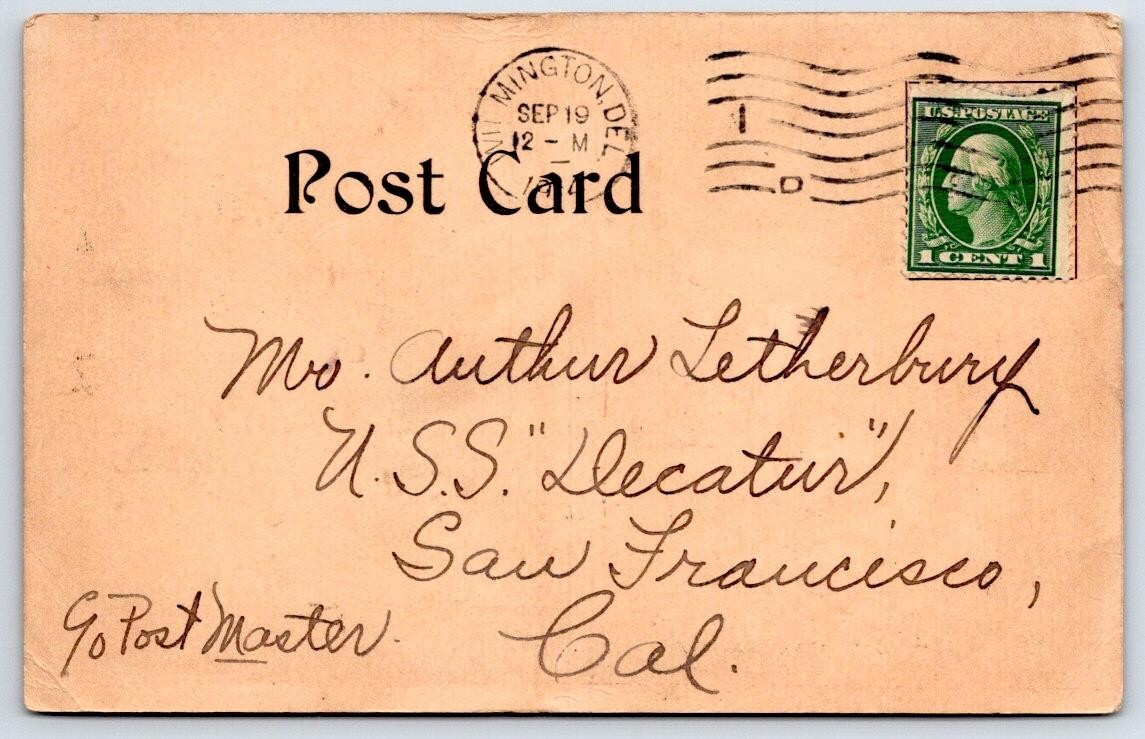 WILMINGTON, DEL.
SEP 19
12 - M
Post Card
1
D
U.S. POSTAGE
1 CENT 1
Mr. Arthur Letherbury
U.S.S. "Decatur",
San Francisco,
Cal.
c/o Post Master.